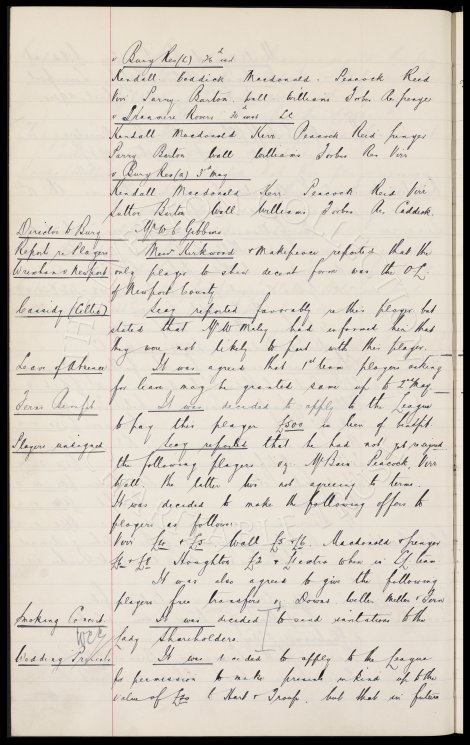 v Bury Res (h) 26th inst
Kendall Caddick Macdonald. Peacock Reid
Virr Parry. Barton. Wall Williams Forbes Res Grenyer
v Tranmere Rovers 30th inst LC
Kendall Macdonald Kerr Peacock Reid Grenyer
Parry Barton Wall Williams Forbes Res Virr
v Bury Res (a) 3rd May
Kendall Macdonald Kerr Peacock Reid Virr
Sutton Barton Wall Williams Forbes Res Caddick.
Director to Bury Mr W C Gibbins
Report re Players Messrs Kirkwood & Makepeace reported that the
Wrexham v Newport only player to shew decent form was the O.L.
of Newport County.
Cassidy (Celtic) Secy reported favorably re this player but
stated that Mr W. Maley had informed him that
they were not likely to part with this player.
Leave of Absence It was agreed that 1st team players asking
for leave may be granted same up to 2nd May
Ferns Benefit It was decided to apply to the League
to pay this player £500 in lieu of benefit
Players unsigned Secy reported that he had not yet re-signed
the following players vz. McBain Peacock, Virr
Wall. the latter two not agreeing to terms.
It was decided to make the following offers to
players as follows:
Virr £4 & £5 Wall £5 & £6. Macdonald & Grenyer
Houghton £2 & £1 extra when in CL team
It was also agreed to give the following
players free transfers vz Downs Weller
Smoking Concert It was decided to send invitations to the
WCC Lady Shareholders.
Wedding Presents It was decided to apply to the League
for permission to make presents in kind up to the
value of £20 to Hart & Troup. but that in future